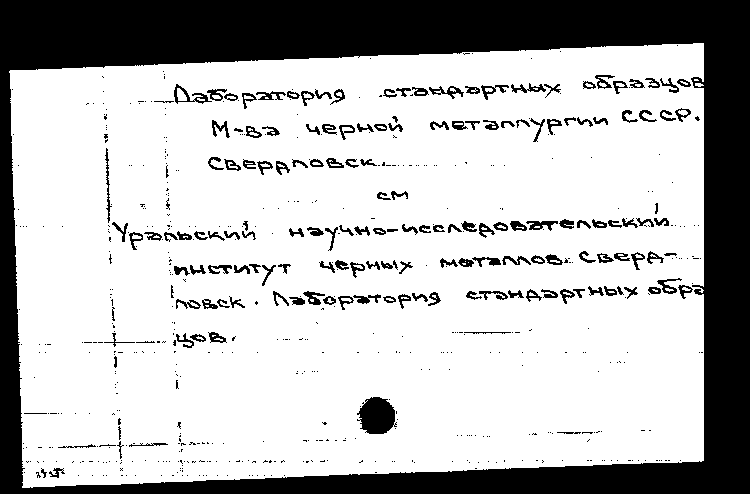 Лаборатория стандартных образцов
М-ва черной металлургии СССР.
Свердловск.
см
Уральский научно-исследовательский
институт черных металлов. Сверд-
ловск. Лаборатория стандартных обра
цов.